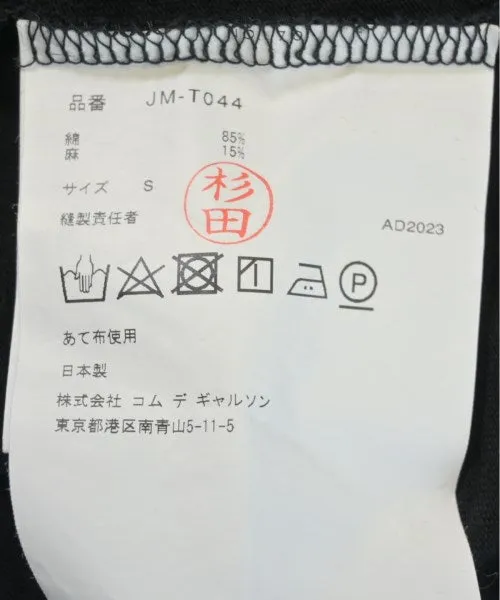 品番 JM-T044
綿 85%
麻 15%
サイズ S
杉田
縫製責任者
AD2023
P
あて布使用
日本製
株式会社 コム デ ギャルソン
東京都港区南青山5-11-5